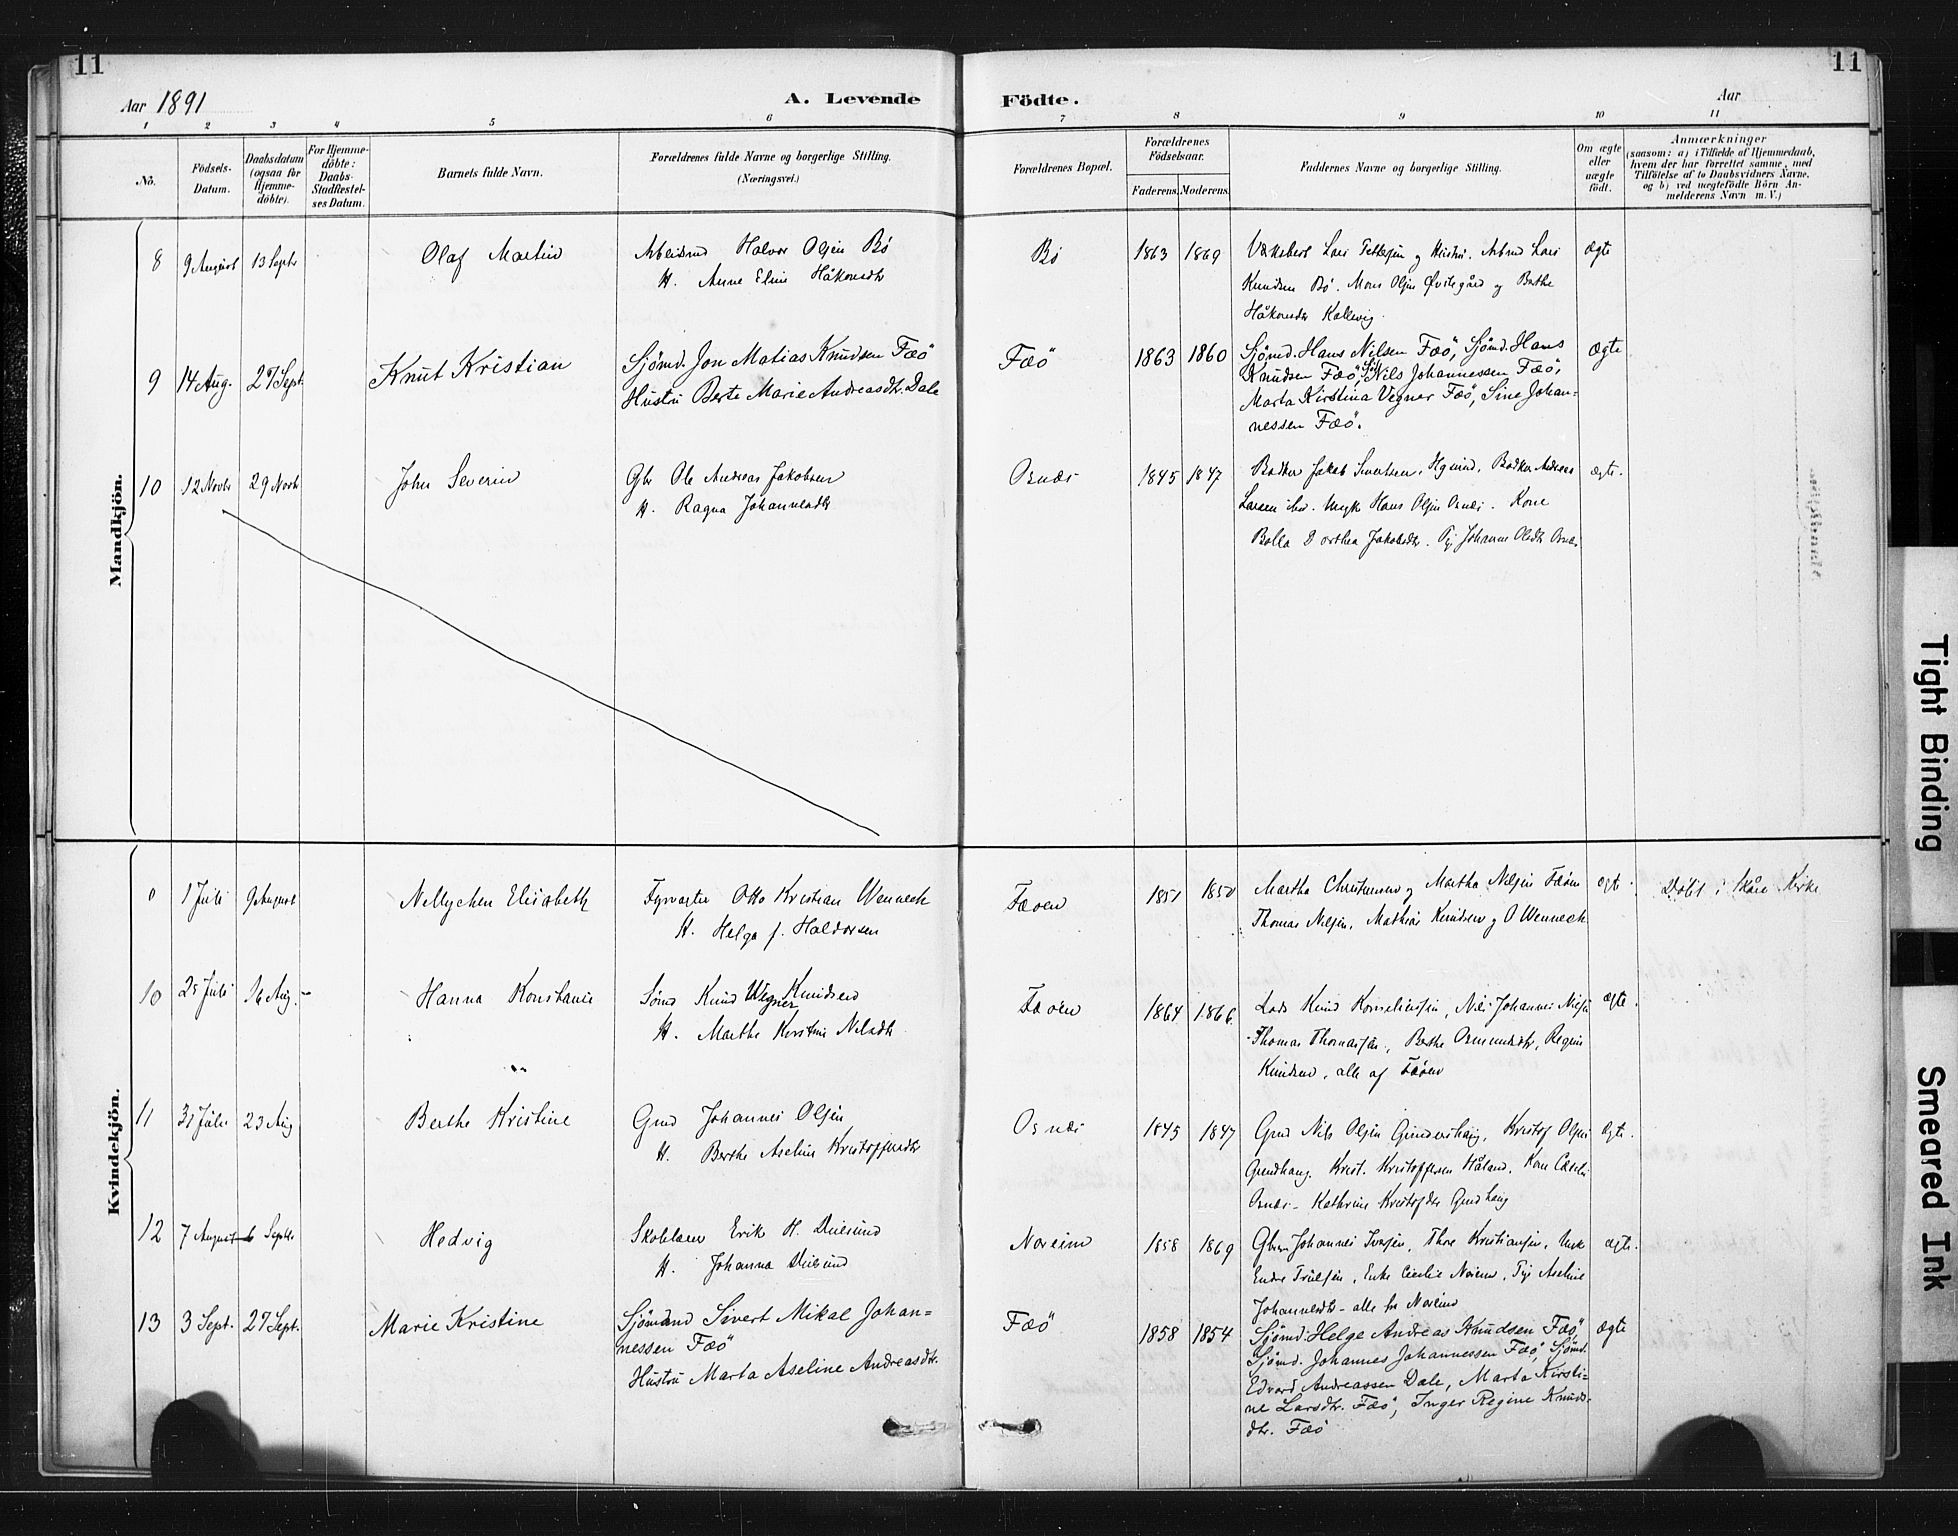 11
11
Aar 1891
A. Levende Födte.
Aar
1 2 3 4 5 6 7 8 9 10 11
No.
Födsels-
Datum.
Daabsdatum
(ogsaa for
Hjemme-
döbte).
For Hjemme-
döbte:
Daabs-
Stadfæstel-
ses Datum.
Barnets fulde Navn.
Forældrenes fulde Navne og borgerlige Stilling.
(Næringsvei.)
Forældrenes Bopæl.
Forældrenes
Födselsaar.
Faderens. Moderens.
Faddernes Navne og borgerlige Stilling.
Om ægte
eller
uægte
födt.
Anmærkninger
(saasom: a) i Tilfælde af Hjemmedaab,
hvem der har forrettet samme, med
Tilföielse af to Daabsvidners Navne,
og b) ved uægtefödte Börn An-
melderens Navn m. V.)
Mandkjön.
8 9 August 13 Septr Olaf Martin
Arbeidsmd Halvor Olsen Bö
H. Anne Eline Håkonsdtr
Bö 1863 1869
Lars Pettersen og Hustru. Arbmd Lars
Knudsen Bö. Mons Olsen Øvregård og Berthe
Håkonsdtr Kallevig.
ægte
9 14 Aug. 27 Sept. Knut Kristian
Sjömd. Jon Matias Knudsen Fæö
Hustru Berte Marie Andreasdtr. Dale
Fæö 1863 1860
Sjömd. Hans Nilsen Fæö, Sjömd. Hans
Knudsen Fæö, Sjö. Nils Johannessen Fæö,
Marta Kirstina Vegner Fæö, Sine Johan=
nessen Fæö.
ægte
10 12 Novbr 29 Novbr John Severin
Gbr Ole Andreas Jakobsen
H. Ragna Johannesdtr
Osnæs 1845 1847
Bødker Jakob Sivertsen, Bødker Andreas
Larsen Hans Olsen Osnæs. Kone
Bolla Dorthea Jakobsdtr. Pige Johanne Olsdtr Osnæs
ægte.
Kvindekjön.
1 Juli 9 August Nellychen Elisabeth
Fyrvogter Otto Kristian Wenneck
H. Helga f. Haldorsen
Fæöen 1851 1850
Martha Christensen og Martha Nilsen Fæöen
Thomas Nilsen, Mathias Knudsen og O Wenneck
ægte.
Døbt i Skåre Kirke
10 25 Juli 16 Aug. Hanna Konstanse
Sömd Knud Wegner Knudsen
H. Marthe Kirstine Nilsdtr
Fæöen 1864 1866
Lods Knud Korneliussen, Nils Johannes Nilsen
Thomas Thomassen, Berthe Osmundsdtr, Regine
Knudsen, alle af Fæöen
ægte.
11 31 Juli 23 Aug Berthe Kristine
Gmd Johannes Olsen
H. Berthe Aseline Kristoffersdtr
Osnæs 1845 1847
Gmd Nils Olsen Grindershaug, Kristof Olsen
Grindhaug. Krist. Kristoffersen Håland. Kone Cecilie
Osnæs. Kathrine Kristofdtr Grindhaug
ægte.
12 7 August 6 Septbr Hedvig
Skolelærer Erik H. Duesund
H. Johanna Duesund
Noreim 1858 1869
Gbrne Johannes Iversen, Thore Kristiansen, Unk
Endre Trulsen, Enke Cecilie Noreim, Pige Aseline
Johannesdtr - alle fra Noreim
ægte.
13 3 Sept. 27 Sept. Marie Kristine
Sjömand Sivert Mikal Johan=
nessen Fæö
Hustru Marta Aseline Andreasdtr.
Fæö 1858 1854
Sjömd. Helge Andreas Knudsen Fæö,
Sjömd. Johannes Johannessen Fæö, Sjömd.
Edvard Andreassen Dale, Marta Kirsti=
ne Larsdtr. Fæö, Inger Regine Knuds-
dtr. Fæö
ægte
Tight Binding
Smeared Ink